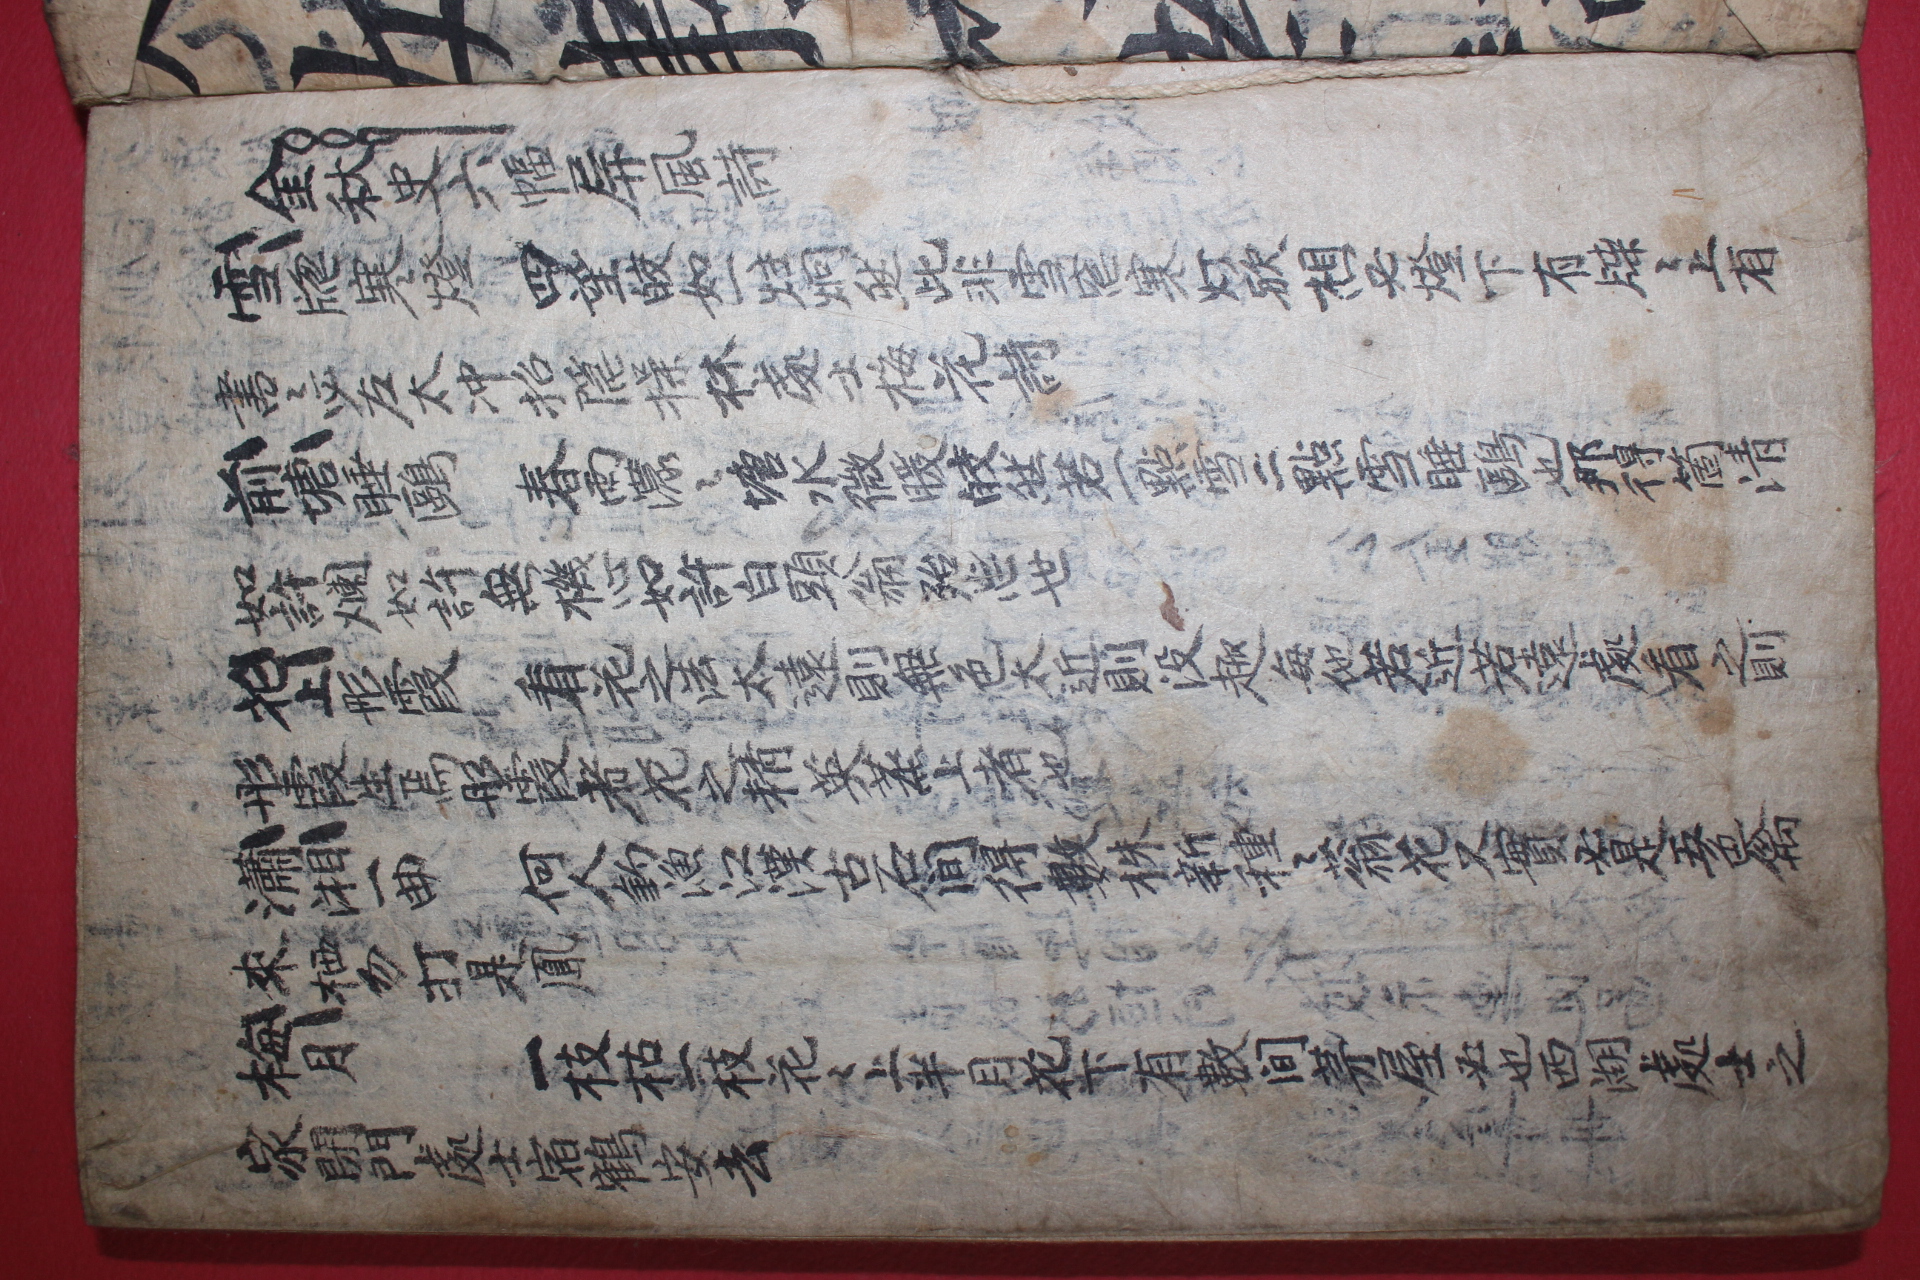 金秋史六幅屛風詩
雪牕寒燈 四望皎如一炷炯然此非雪窓寒灯欤想必燈下有牀〻上有
書〻必左太冲招隱操林處士梅花詩
前塘睡鷗 春雨濛〻塘水微暖皎然若一點雪二點雪睡鷗也那得箇清
如許爛如許無機心如許白頭翁殆忘世
花上彤霞 看花之法太遠則無色太近則没趣每他若近若遠處看之則
彤霞生焉彤霞者花之精英蒸上者也
瀟湘一曲 何人釣漁江漢古石间得數株新種〻蓊花又實必是五色禽
來栖勿打是鳳
梅月 一枝枯一枝花〻上半月花下有數间茅屋必也西湖處士之
家閉門處士宿鶴安去